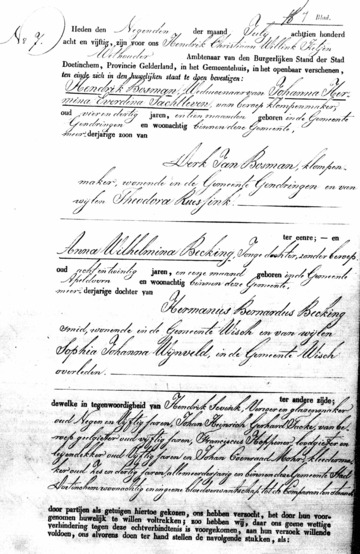 7 Blad.
No 7.
Heden den Negenden der maand July achttien honderd
acht en vijftig, zijn voor ons Hendrik Christiaan Willink
Wethouder Ambtenaar van den Burgerlijken Stand der Stad
Doetinchem, Provincie Gelderland, in het Gemeentehuis, in het openbaar verschenen,
ten einde zich in den huwelijken staat te doen bevestigen:
Hendrik Bosman, Weduwenaar van Johanna Her-
mina Everdina Jachtleven, van beroep klompenmaker,
oud vier en dertig jaren, en tien maanden geboren in de Gemeente
Gendringen en woonachtig binnen deze Gemeente,
meerderjarige zoon van
Derk Jan Bosman, klompen-
maker, wonende in de Gemeente Gendringen en van
wylen Theodora Kuisfink.
ter eenre; — en
Anna Wilhelmina Becking, Jonge dochter, zonder beroep,
oud acht en twintig jaren, en eene maand geboren in de Gemeente
Apeldoorn en woonachtig binnen deze Gemeente,
meerderjarige dochter van
Hermanus Bernardus Becking
smid, wonende in de Gemeente Wisch en van wylen
Sophia Johanna Wynveld, in de Gemeente Wisch
overleden.
ter andere zijde;
dewelke in tegenwoordigheid van Hendrik Verver en glazenmaker
oud Negen en vyftig jaren, Johan Heinrich Gerhard van be-
roep oud vyftig jaren, Franciscus Koppener, loodgieter en
oud vyftig jaren en Johan Coenraad kleederma-
ker oud Zes en dertig jaren, allen meerderjarig en binnen deze Gemeente Stad
Doetinchem woonachtig en in geene bloedverwantschap tot de Comparanten staande
door partijen als getuigen hiertoe gekozen, ons hebben verzocht, het door hun voor-
genomen huwelijk te willen voltrekken; zoo hebben wij, daar ons geene wettige
verhindering tegen deze echtverbindtenis is voorgekomen, aan hun verzoek willende
voldoen, ons alvorens doen ter hand stellen de navolgende stukken, als: